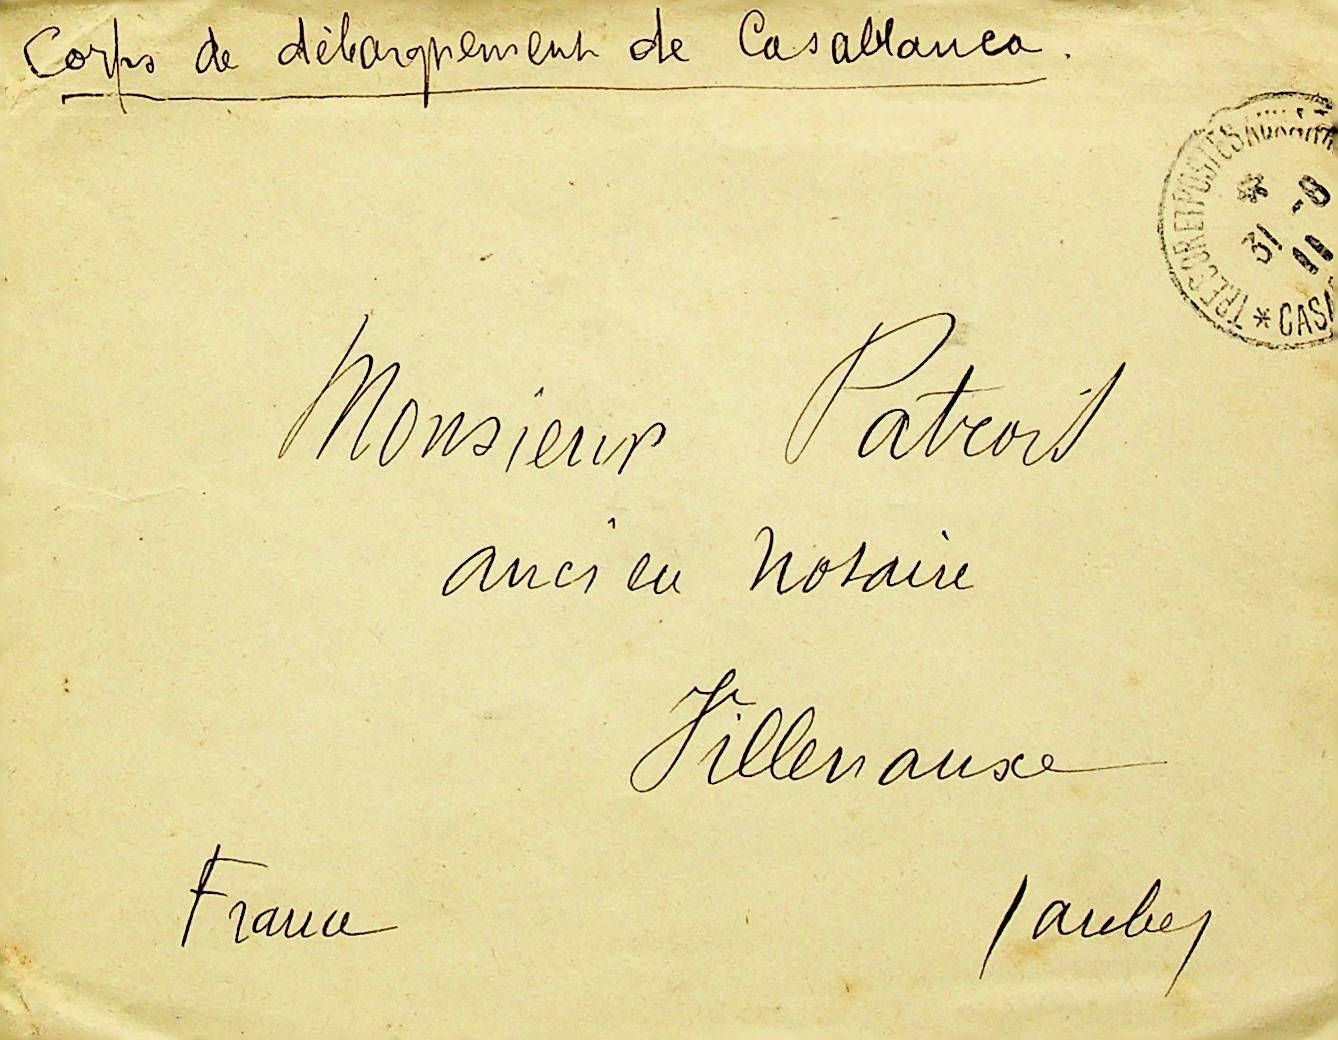 Corps de débarquement de Casablanca.
TRESOR ET POSTES AUX ARMEES
31 -8
11
* CASA
Monsieur Patroit
ancien Notaire
Villenauxe
France (aube)